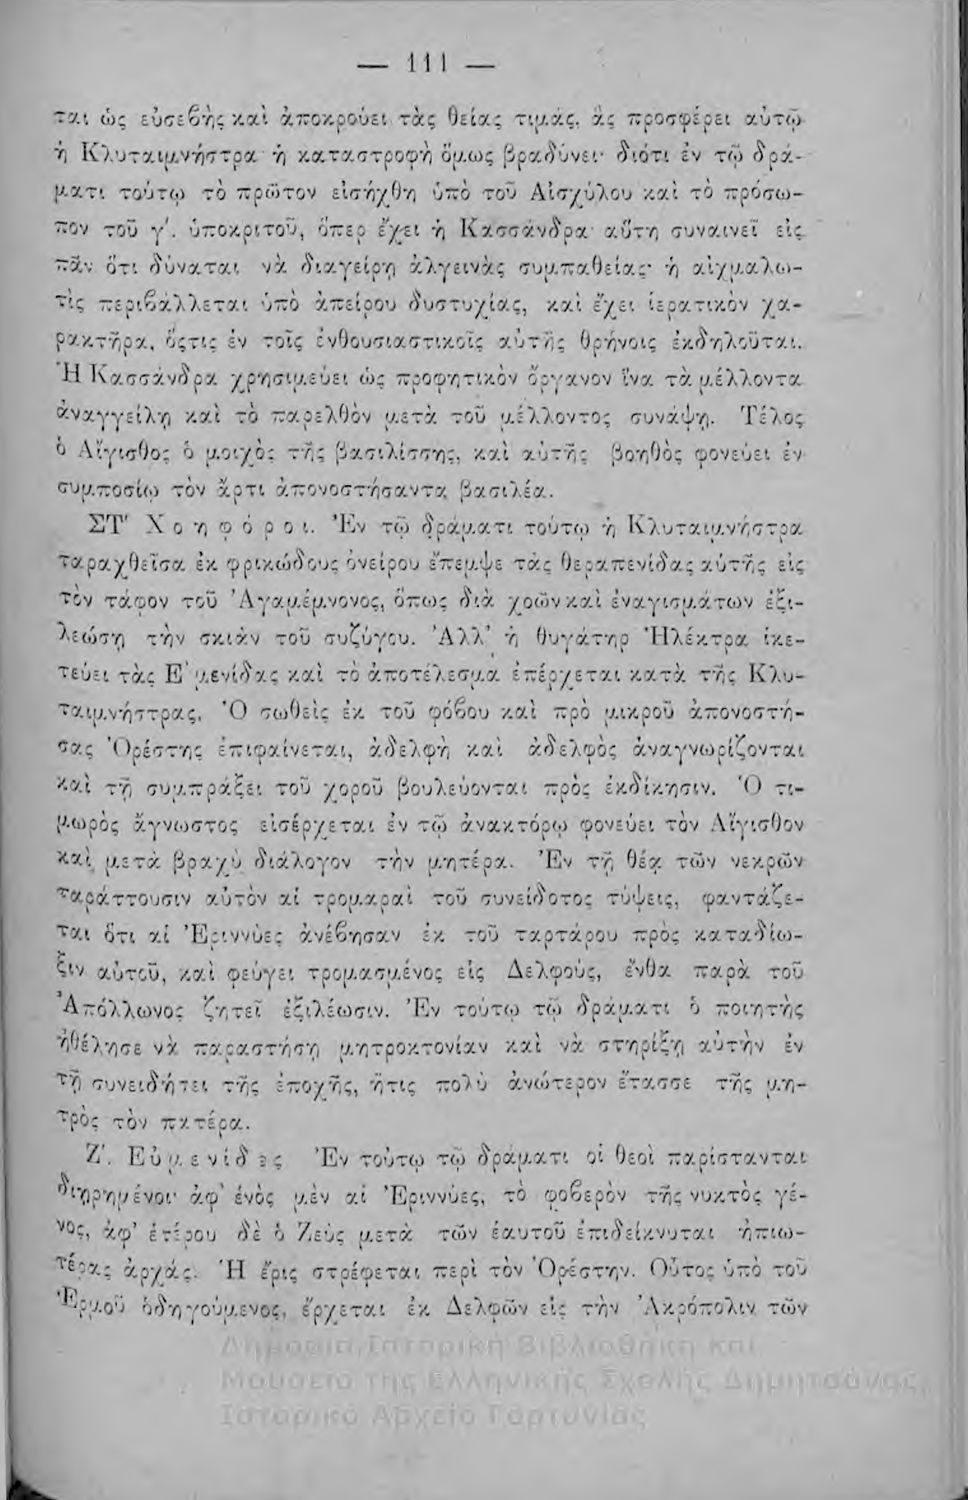 — 111 —
ται ὡς εὐσεβὴς καὶ ἀποκρούει τὰς θείας τιμάς, ἃς προσφέρει αὐτῷ
ἡ Κλυταιμνήστρα· ἡ καταστροφὴ ὅμως βραδύνει· διότι ἐν τῷ δρά-
ματι τούτῳ τὸ πρῶτον εἰσήχθη ὑπὸ τοῦ Αἰσχύλου καὶ τὸ πρόσω-
πον τοῦ γ'. ὑποκριτοῦ, ὅπερ ἔχει ἡ Κασσάνδρα· αὕτη συναινεῖ εἰς
πᾶν ὅτι δύναται νὰ διαγείρῃ ἀλγεινὰς συμπαθείας· ἡ αἰχμαλω-
τὶς περιβάλλεται ὑπὸ ἀπείρου δυστυχίας, καὶ ἔχει ἱερατικὸν χα-
ρακτῆρα, ὅςτις ἐν τοῖς ἐνθουσιαστικοῖς αὐτῆς θρήνοις ἐκδηλοῦται.
Ἡ Κασσάνδρα χρησιμεύει ὡς προφητικὸν ὄργανον ἵνα τὰ μέλλοντα
ἀναγγείλῃ καὶ τὸ παρελθὸν μετὰ τοῦ μέλλοντος συνάψῃ. Τέλος
ὁ Αἴγισθος ὁ μοιχὸς τῆς βασιλίσσης, καὶ αὐτῆς βοηθὸς φονεύει ἐν
συμποσίῳ τὸν ἄρτι ἀπονοστήσαντα βασιλέα.
ΣΤ' Χοηφόροι. Ἐν τῷ δράματι τούτῳ ἡ Κλυταιμνήστρα
ταραχθεῖσα ἐκ φρικώδους ὀνείρου ἔπεμψε τὰς θεραπενίδας αὐτῆς εἰς
τὸν τάφον τοῦ Ἀγαμέμνονος, ὅπως διὰ χοῶν καὶ ἐναγισμάτων ἐξι-
λεώσῃ τὴν σκιὰν τοῦ συζύγου. Ἀλλ' ἡ θυγάτηρ Ἠλέκτρα ἱκε-
τεύει τὰς Ε' μενίδας καὶ τὸ ἀποτέλεσμα ἐπέρχεται κατὰ τῆς Κλυ-
ταιμνήστρας. Ὁ σωθεὶς ἐκ τοῦ φόβου καὶ πρὸ μικροῦ ἀπονοστή-
σας Ὀρέστης ἐπιφαίνεται, ἀδελφὴ καὶ ἀδελφὸς ἀναγνωρίζονται
καὶ τῇ συμπράξει τοῦ χοροῦ βουλεύονται πρὸς ἐκδίκησιν. Ὁ τι-
μωρὸς ἄγνωστος εἰσέρχεται ἐν τῷ ἀνακτόρῳ φονεύει τὸν Αἴγισθον
καὶ μετὰ βραχὺ διάλογον τὴν μητέρα. Ἐν τῇ θέᾳ τῶν νεκρῶν
ταράττουσιν αὐτὸν αἱ τρομαραὶ τοῦ συνείδοτος τύψεις, φαντάζε-
ται ὅτι αἱ Ἐριννύες ἀνέβησαν ἐκ τοῦ ταρτάρου πρὸς καταδίω-
ξιν αὐτοῦ, καὶ φεύγει τρομασμένος εἰς Δελφούς, ἔνθα παρὰ τοῦ
Ἀπόλλωνος ζητεῖ ἐξιλέωσιν. Ἐν τούτῳ τῷ δράματι ὁ ποιητὴς
ἠθέλησε νὰ παραστήσῃ μητροκτονίαν καὶ νὰ στηρίξῃ αὐτὴν ἐν
τῇ συνειδήτει τῆς ἐποχῆς, ἥτις πολὺ ἀνώτερον ἔτασσε τῆς μη-
τρὸς τὸν πατέρα.
Ζ'. Εὐμενίδες Ἐν τούτῳ τῷ δράματι οἱ θεοὶ παρίστανται
διῃρημένοι· ἀφ' ἑνὸς μὲν αἱ Ἐριννύες, τὸ φοβερὸν τῆς νυκτὸς γέ-
νος, ἀφ' ἑτέρου δὲ ὁ Ζεὺς μετὰ τῶν ἑαυτοῦ ἐπιδείκνυται ἠπιω-
τέρας ἀρχάς. Ἡ ἔρις στρέφεται περὶ τὸν Ὀρέστην. Οὗτος ὑπὸ τοῦ
Ἑρμοῦ ὁδηγούμενος, ἔρχεται ἐκ Δελφῶν εἰς τὴν Ἀκρόπολιν τῶν
Δημόσια Ιστορική Βιβλιοθήκη και
Μουσείο της Ελληνικής Σχολής Δημητσάνας,
Ιστορικό Αρχείο Γορτυνίας